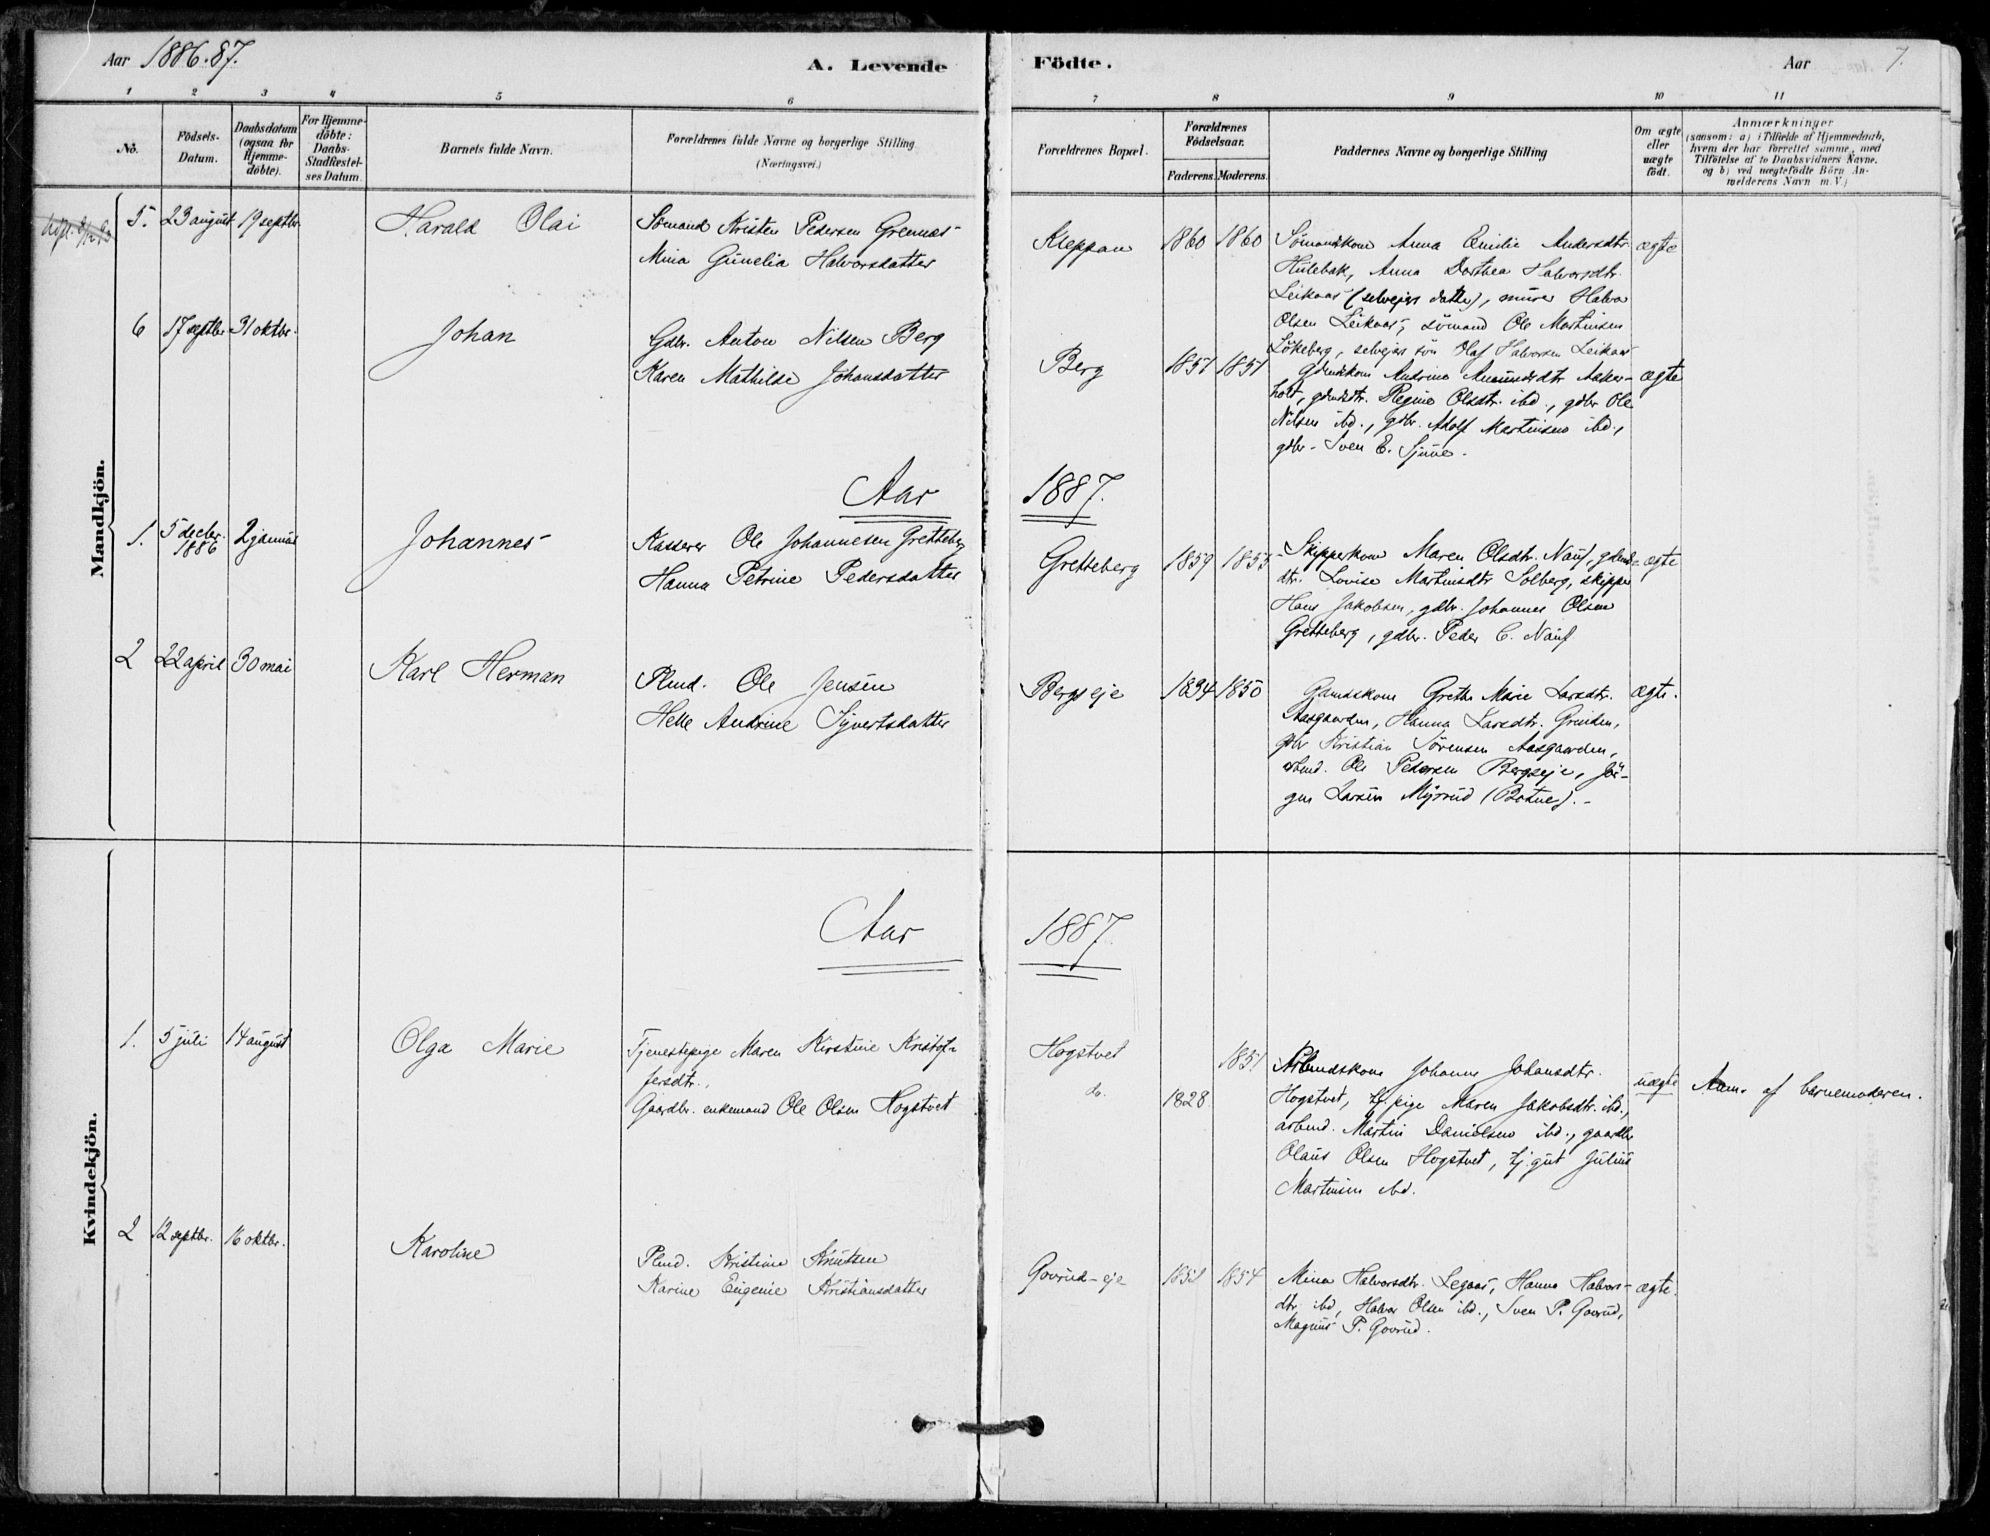 Aar 1886.87.
A. Levende
Födte.
Aar
7.
1 2 3 4 5 6
7 8 9 10 11
No.
Födsels-
Datum.
Daabsdatum
(ogsaa for
Hjemme-
döbte).
For Hjemme-
döbte:
Daabs-
Stadfæstel-
ses Datum.
Barnets fulde Navn.
Forældrenes fulde Navne og borgerlige Stilling
(Næringsvei.)
Forældrenes Bopæl.
Forældrenes
Födselsaar.
Faderens. Moderens.
Faddernes Navne og borgerlige Stilling
Om ægte
eller
uægte
födt.
Anmærkninger
(saasom: a) i Tilfælde af Hjemmedaab,
hvem der har forrettet samme, med
Tilföielse af to Daabsvidners Navne.
og b) ved uægtefödte Börn An-
melderens Navn m.V.)
Mandkjön.
5. 23 august 19 septbr.
Harald Olai
Sömand Kristen Pedersen Grennes
Mina Gunelia Halvorsdatter
Kleppan 1860 1860
Sömandskone Anna Emilie Andersdtr.
Hulebak, Anna Dorthea Halvorsdtr.
Leikaas (selvejers datter), murer Halvor
Olsen Leikaas, sömand Ole Martinsen
Lökeberg, selvejers sön Olaf Halvorsen Leikaas
ægte
6 17 septbr. 31 oktbr.
Johan
Gdbr. Anton Nilsen Berg
Karen Mathilde Johansdatter
Berg 1851 1851
Gdmdskone Andrine Amundsdtr Aaker-
holt, gdmdsdtr. Regine Olsdtr. ibd., gdbr Ole
Nilsen ibd., gdbr. Adolf Martinsen ibd.,
gdbr. Sven E. Sjuve.
ægte
Aar 1887.
1. 5 decbr. 1886 2 januar
Johannes
Kasserer Ole Johannesen Gretteberg
Hanna Petrine Pedersdatter
Gretteberg 1859 1855
Skipperkone Maren Olsdtr. Nauf, gdmds-
dtr. Lovise Martinsdtr Solberg, skipper
Hans Jakobsen, gdbr. Johannes Olsen
Gretteberg, gdbr. Peder C. Nauf
ægte
2 22 april 30 mai
Karl Herman
Plmd. Ole Jensen
Helle Andrine Syvertsdatter
Bergseje 1834 1850
Gdmdskone Grethe Marie Larsdtr.
Aasgaarden, Hanna Larsdtr. Grinden,
gdbr Kristian Sörensen Aasgaarden,
arbmd. Ole Pedersen Bergseje, Jör-
gen Larsen Myrrud (Botne).
ægte.
Kvindekjön.
Aar 1887.
1. 5 juli 14 august
Olga Marie
Tjenestepige Maren Kirstine Kristof-
fersdtr.,
Gaardbr. enkemand Ole Olsen Hogstvet
Hogstvet 1851
do. 1828
Arbmdskone Johanne Johansdtr.
Hogstvet, tj. pige Maren Jakobsdtr. ibd.,
arbmd. Martin Danielsen ibd., gaardbr
Olaus Olsen Hogstvet, tj. gut Julius
Martinsen ibd.
uægte
Anm. af barnemoderen.
2 12 septbr. 16 oktbr.
Karoline
Plmd. Kristian Knutsen
Karine Eugenie Kristiansdatter
Govrud-eje 1851 1854
Mina Halvorsdtr. Legaas, Hanna Halvors-
dtr. ibd, Halvor Olsen ibd., Sven P. Govrud,
Magnus P. Govrud.
ægte.